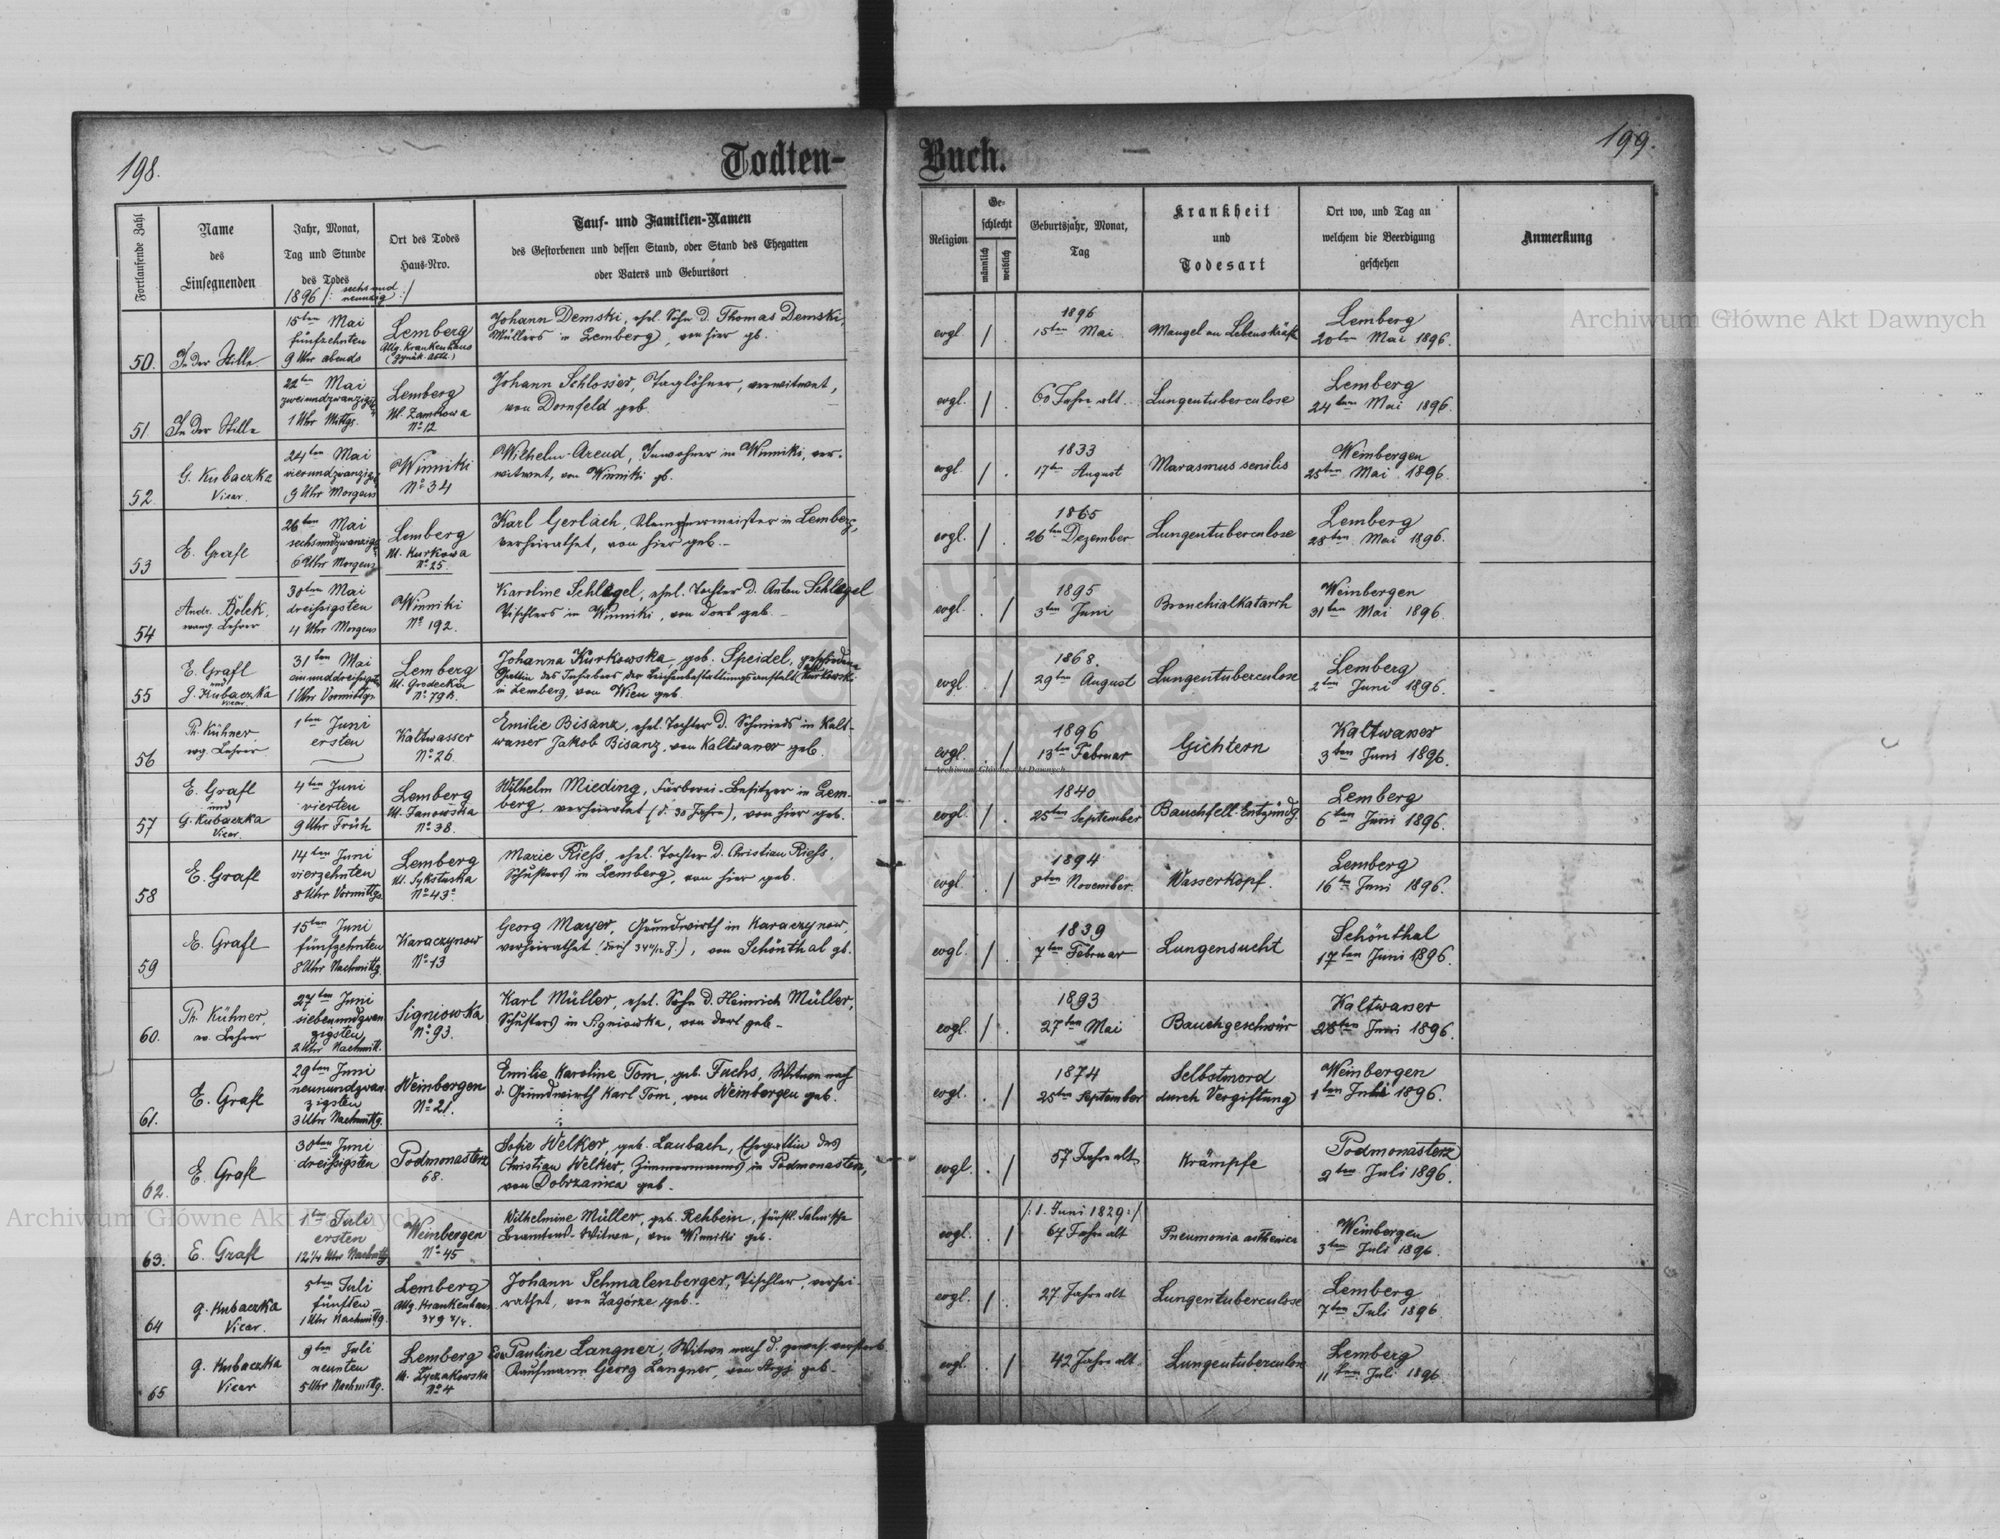 198.
Todten-
Buch.
199.
Fortlaufende Zahl
Name
des
Einsegnenden
Jahr, Monat,
Tag und Stunde
des Todes
1896 /: sechs und
neunzig :/
Ort des Todes
Haus-Nro.
Tauf- und Familien-Namen
des Gestorbenen und dessen Stand, oder Stand des Ehegatten
oder Vaters und Geburtsort
Religion
Ge-
schlecht
männlich
weiblich
Geburtsjahr, Monat,
Tag
Krankheit
und
Todesart
Ort wo, und Tag an
welchem die Beerdigung
geschehen
Anmerkung
50.
In der Stille
15ten Mai
fünfzehnten
9 Uhr abends
Lemberg
Allg. Krankenhaus
Johann Demski, ehel. Sohn d. Thomas Demski,
Müllers in Lemberg, von hier gb.
evgl.
/
.
1896
15ten Mai
Mangel an Lebenskraft
Lemberg
20ten Mai 1896.
51
In der Stille
22ten Mai
zweiundzwanzigst
1 Uhr Mittgs.
Lemberg
Ul. Zamkowa
No 12
Johann Schlosser, Taglöhner, verwitwet,
von Dornfeld geb.
evgl.
/
.
60 Jahre alt
Lungentuberculose
Lemberg
24ten Mai 1896.
52.
G. Kubaczka
Vicar.
24ten Mai
vierundzwanzigst
9 Uhr Morgens
Winniki
No 34
Wilhelm Arend, Inwohner in Winniki, ver-
witwet, von Winniki gb.
evgl
/
.
1833
17ten August
Marasmus senilis
Weinbergen
25ten Mai 1896.
53
E. Grafl
26ten Mai
sechsundzwanzigst
6 Uhr Morgens
Lemberg
Ul. Kurkowa
No 25.
Karl Gerlach, Klempnermeister in Lemberg,
verheirathet, von hier geb. -
evgl.
/
.
1865
26ten Dezember
Lungentuberculose
Lemberg
28ten Mai 1896.
54
Andr. Bolek,
evang. Lehrer
30ten Mai
dreißigsten
4 Uhr Morgens
Winniki
No 192.
Karoline Schlagel, ehel. Tochter d. Anton Schlagel
Tischlers in Winniki, von dort geb. -
evgl.
.
/
1895
3ten Juni
Bronchialkatarrh
Weinbergen
31ten Mai 1896.
55
E. Grafl
und
G. Kubaczka
Vicar.
31ten Mai
einunddreißigst
1 Uhr Vormittgs
Lemberg
Ul. Grodecka
No 79 B.
Johanna Kurkowska, geb. Speidel, geschiedene
Gattin des Inhabers der Leichenbestattungsanstalt Kurkowski
in Lemberg, von Wien geb.
evgl.
.
/
1868.
29ten August
Lungentuberculose
Lemberg
2ten Juni 1896.
56
Th. Kühner
evg. Lehrer
1ten Juni
ersten
Kaltwasser
No 26.
Emilie Bisanz, ehel. Tochter d. Schmieds in Kalt-
wasser Jakob Bisanz, von Kaltwasser geb.
evgl.
.
/
1896
13ten Februar
Gichtern
Kaltwasser
3ten Juni 1896.
Archiwum Główne Akt Dawnych
57
E. Grafl
und
G. Kubaczka
Vicar.
4ten Juni
vierten
9 Uhr Früh
Lemberg
Ul. Janowska
No 38.
Wilhelm Mieding, Färberei-Besitzer in Lem-
berg, verheirathet (d. 30 Jahre), von hier geb.
evgl.
/
.
1840
25ten September
Bauchfell-Entzündg.
Lemberg
6ten Juni 1896.
58
E. Grafl
14ten Juni
vierzehnten
8 Uhr Vormittgs
Lemberg
Ul. Sykstuska
No 43a
Marie Rieß, ehel. Tochter d. Christian Rieß,
Schusters in Lemberg, von hier geb.
evgl.
.
/
1894
8ten November.
Wasserkopf.
Lemberg
16ten Juni 1896.
59
E. Grafl
15ten Juni
fünfzehnten
8 Uhr Nachmittg.
Karaczynow
No 13
Georg Mayer, Grundwirth in Karaczynow,
verheirathet von Schönthal gb.
evgl.
/
.
1839
7ten Februar
Lungensucht
Schönthal
17ten Juni 1896.
60.
Th. Kühner,
ev. Lehrer
27ten Juni
siebenundzwan-
zigsten
2 Uhr Nachmitt.
Signiowka
No 93.
Karl Müller, ehel. Sohn d. Heinrich Müller,
Schusters in Signiowka, von dort geb. -
evgl.
/
.
1893
27ten Mai
Bauchgeschwür
Kaltwasser
28ten Juni 1896.
61.
E. Grafl
29ten Juni
neunundzwan-
zigsten
3 Uhr Nachmittg.
Weinbergen
No 21.
Emilie Karoline Tom, geb. Fuchs, Witwe nach
d. Grundwirth Karl Tom, von Weinbergen geb.
evgl.
.
/
1874
25ten September
Selbstmord
durch Vergiftung
Weinbergen
1ten Juli 1896.
62.
E. Grafl
30ten Juni
dreißigsten
Podmonasterz
68.
Sofie Welker, geb. Laubach, Ehegattin des
Christian Welker, Zimmermanns in Podmonasterz,
von Dobrzanica geb.
evgl.
.
/
57 Jahre alt
Krämpfe
Podmonasterz
2ten Juli 1896.
63.
E. Grafl
1ten Juli
ersten
12 1/4 Uhr Nachmittg
Weinbergen
No 45
Wilhelmine Müller, geb. Rehbein, fürstl. Salm'sche
Beamtens-Witwe, von Winniki geb.
evgl.
.
/
/: 1. Juni 1829 :/
67 Jahre alt
Pneumonia asthenica
Weinbergen
3ten Juli 1896.
64
G. Kubaczka
Vicar.
5ten Juli
fünften
1 Uhr Nachmittg.
Lemberg
Allg. Krankenhaus
349 2/4.
Johann Schmalenberger, Tischler, verhei-
rathet, von Zagórze geb.
evgl.
/
.
27 Jahre alt
Lungentuberculose
Lemberg
7ten Juli 1896
65
G. Kubaczka
Vicar
9ten Juli
neunten
5 Uhr Nachmittg.
Lemberg
Ul. Łyczakowska
No 4
Eva Pauline Langner, Witwe nach d. gewes. verstorb.
Kaufmann Georg Langner, von geb. -
evgl.
.
/
42 Jahre alt.
Lungentuberculose
Lemberg
11ten Juli 1896.
Archiwum Główne Akt Dawnych
Archiwum Główne Akt Dawnych